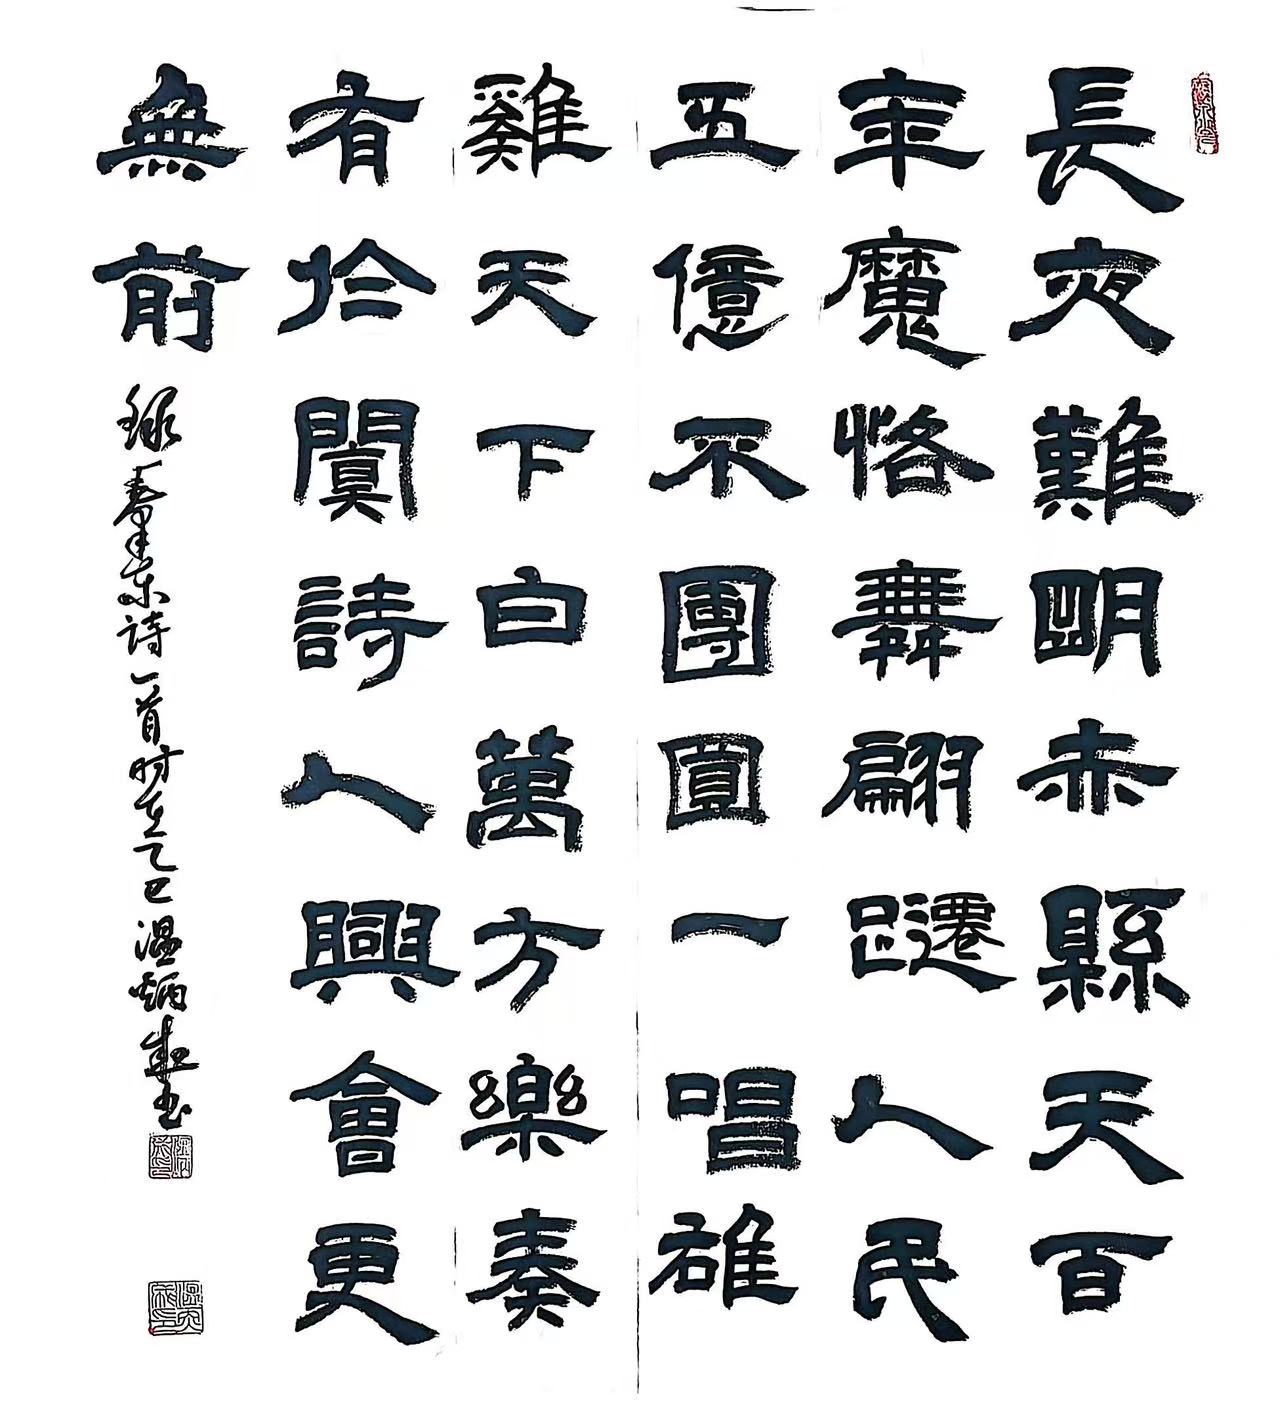 長夜難朙赤縣天百
年魔恪舞翩躚人民
五億不團圓一唱雄
雞天下白萬方樂奏
有扵闐詩人興會更
無前
録毛泽东詩一首时在乙巳温炳书